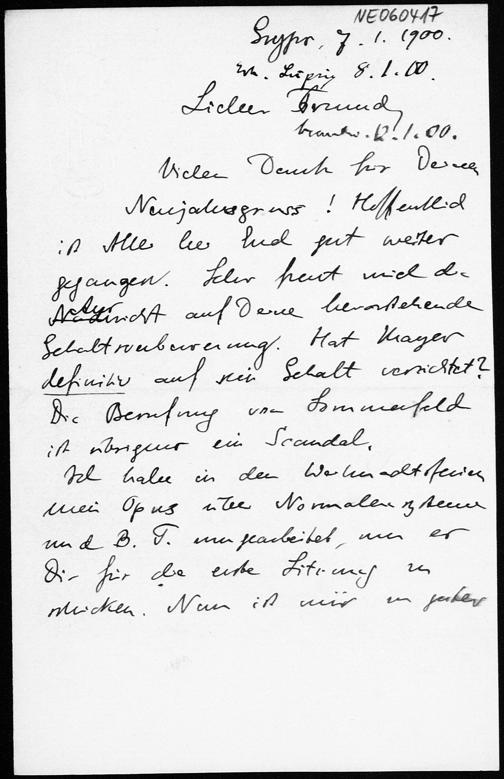 NE060417
Gryps, 7. 1. 1900.
Erh. Leipzig 8.1.00.
Lieber Freund,
beantw. 12.1.00.
Vielen Dank für Deinen
Neujahrsgruss! Hoffentlich
ist Alles bei Euch gut weiter
gegangen. Sehr freut mich die
Nachricht auf Deine bevorstehende
Gehaltsverbesserung. Hat Mayer
definitiv auf sein Gehalt verzichtet?
Die Berufung von Sommerfeld
ist übrigens ein Scandal.
Ich habe in den Weihnachtsferien
mein Opus über Normalensysteme
und B. T. umgearbeitet, um es
Dir für die erste Sitzung zu
schicken. Nun ist mir in guter